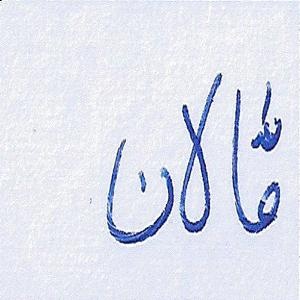 ڤالان